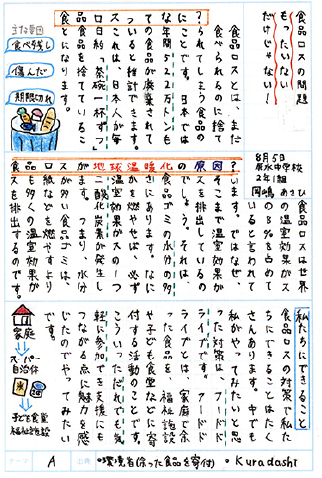 食品ロスの問題
もったいない
だけじゃない！
食品ロスってなに？
食品ロスとは、まだ
食べられるのに捨て
られてしまう食品の
ことです。日本では
年間522万トンも
の食品が廃棄されて
いると推計できます。
これは、日本人が毎
日約「茶碗一杯ずつ」
食品を捨てているこ
とになります。
主な要因
食べ残し
傷んだ
期限切れ
8月5日
原水中学校
2年1組
岡嶋 あさひ
食品ロスが地球温暖化の原因？
食品ロスは世界
の温室効果ガス
の8%を占めて
いると言われて
います。ではなぜ、
そこまで温室効果ガ
スを排出しているの
でしょう。それは、
食品ゴミの水分の多
さにあります。なに
かを燃やせば、必ず
温室効果ガスの一つ
二酸化炭素が発生し
ます。つまり、水分
が多い食品ゴミは、
紙などを燃やすより
も多くの温室効果ガ
スを排出するのです。
私たちにできること
食品ロスの対策で私た
ちにできることはたく
さんあります。中でも
私がやってみたいと思
った対策は、フードド
ライブです。フードド
ライブは、家庭で余
った食品を、福祉施設
や子ども食堂などに寄
付する活動のことです。
こういっただれでも気
軽に参加でき支援にも
つながる点に魅力を感
じたのでやってみたい
です。
家庭
スーパー
自治体
子ども食堂
福祉施設
テーマ A 出典 ・環境省(余った食品を寄付) ・Kuradashi